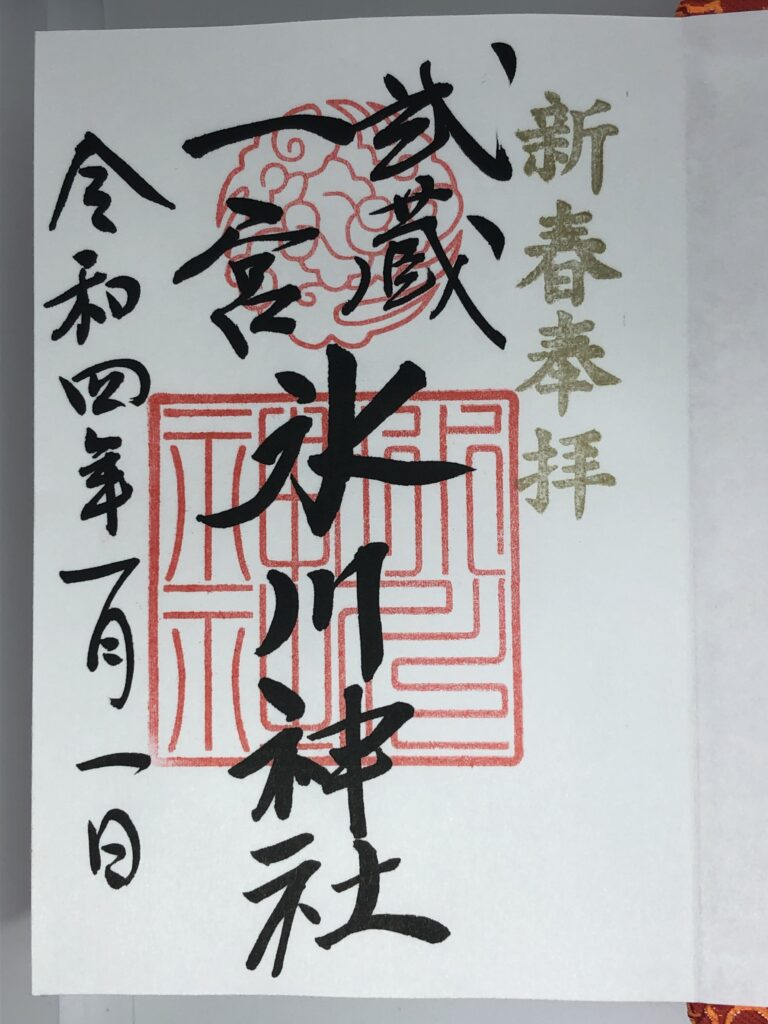 新春奉拝
武蔵
一宮
氷川神社
令和四年一月一日